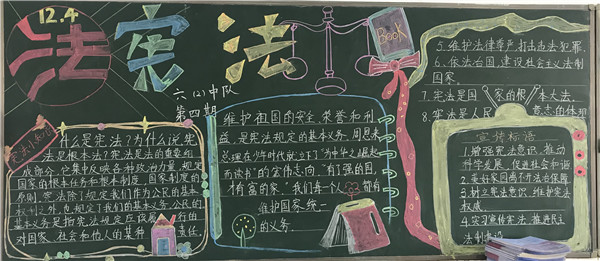 12.4
法
宪法
六(2)中队
第四期
宪法小知识
什么是宪法?为什么说宪
法是根本法?宪法是法的重要组
成部分,它集中反映各种政治力量,规定
国家的根本任务和根本制度,国家制度的
原则,宪法除了规定我们作为公民的基本
权利之外,也规定了我们的基本义务,公民的
基本义务是指宪法规定应该履行的
对国家、社会和他人的某种责任。
维护祖国的安全、荣誉和利
益,是宪法规定的基本义务,周恩来
总理在少年时代就立下了“为中华之崛起
而读书”的宏伟志向,“有了强的国,
才有富的家,”我们每一个人都有
维护国家统一
的义务。
Book
5.维护法律尊严,打击违法犯罪.
6.依法治国,建设社会主义法制
国家.
7.宪法是国家的根本大法.
8.宪法是人民意志的体现
宣传标语
1.增强宪法意识,推动
科学发展,促进社会和谐
2.美好家园离不开法治保障
3.树立宪法意识,维护宪法
权威
4.学习宣传宪法,推进民主
法制建设